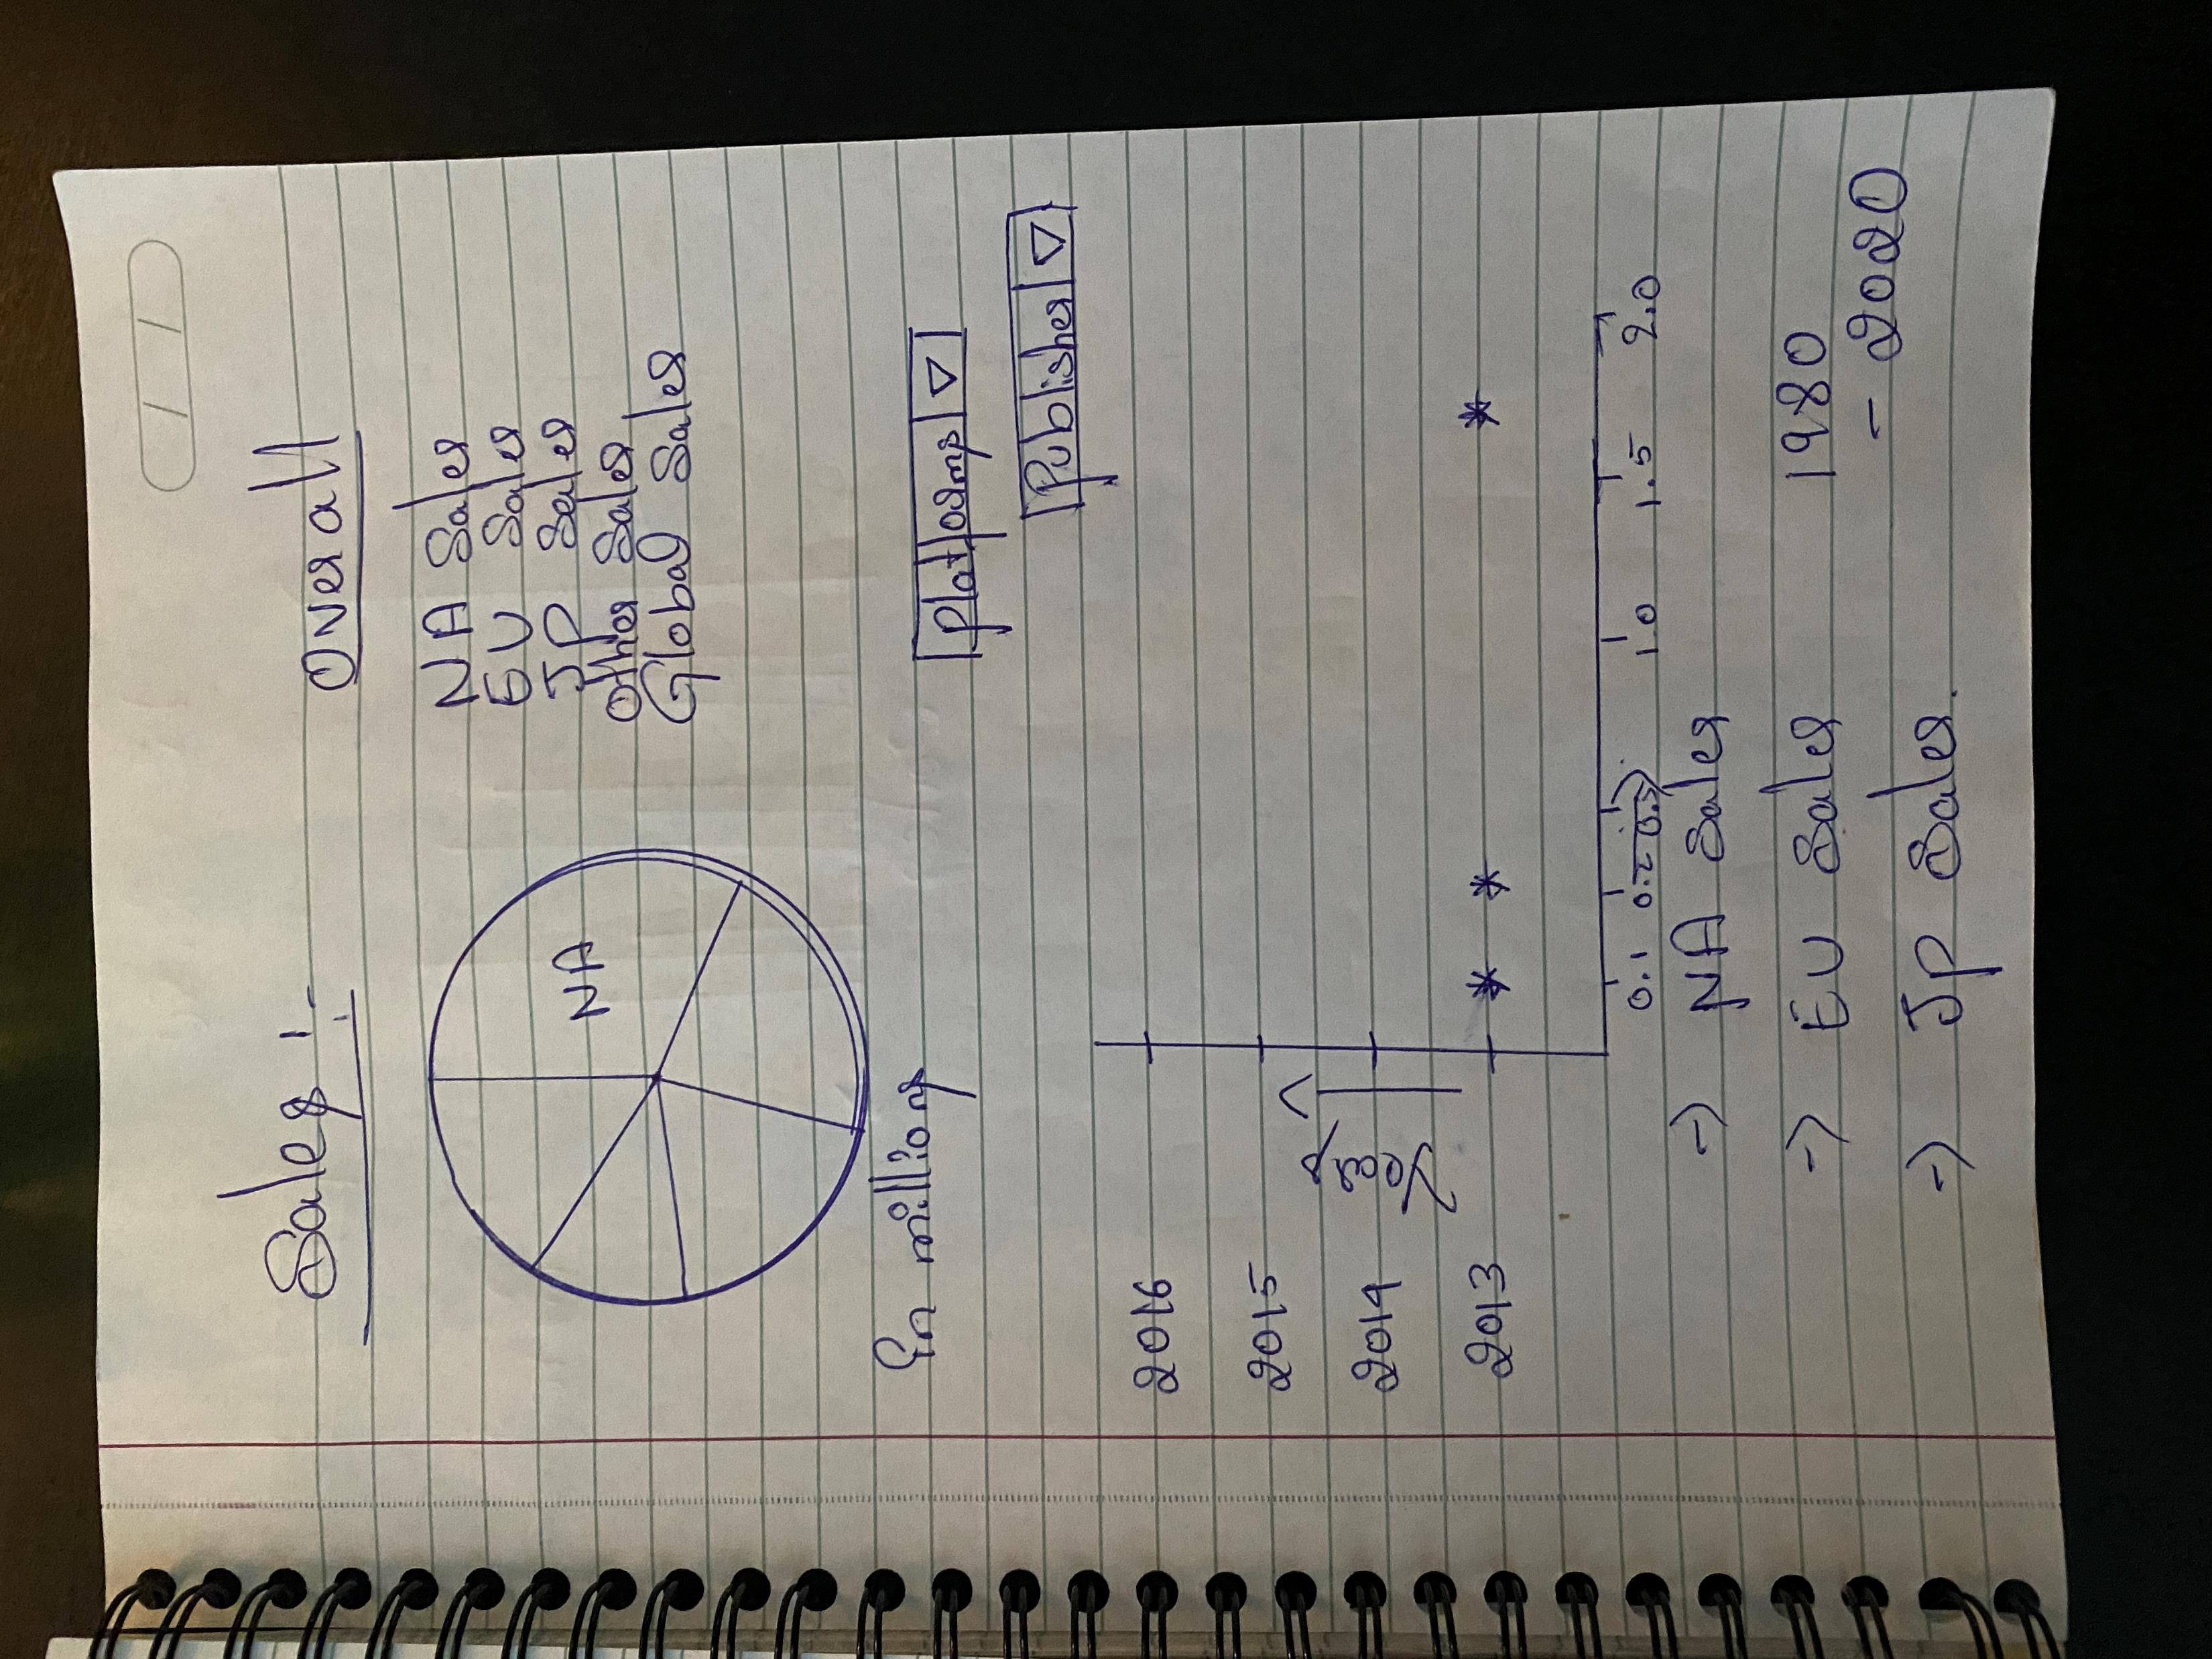 Sales :- Overall
NA Sales
EU Sales
JP Sales
Other Sales
Global Sales
NA
In million
Platform
Publisher
2016
2015
2014
2013
0.1 0.2 0.5 1.0 1.5 2.0
-> NA Sales
-> EU Sales 1980
- 2020
-> JP Sales.